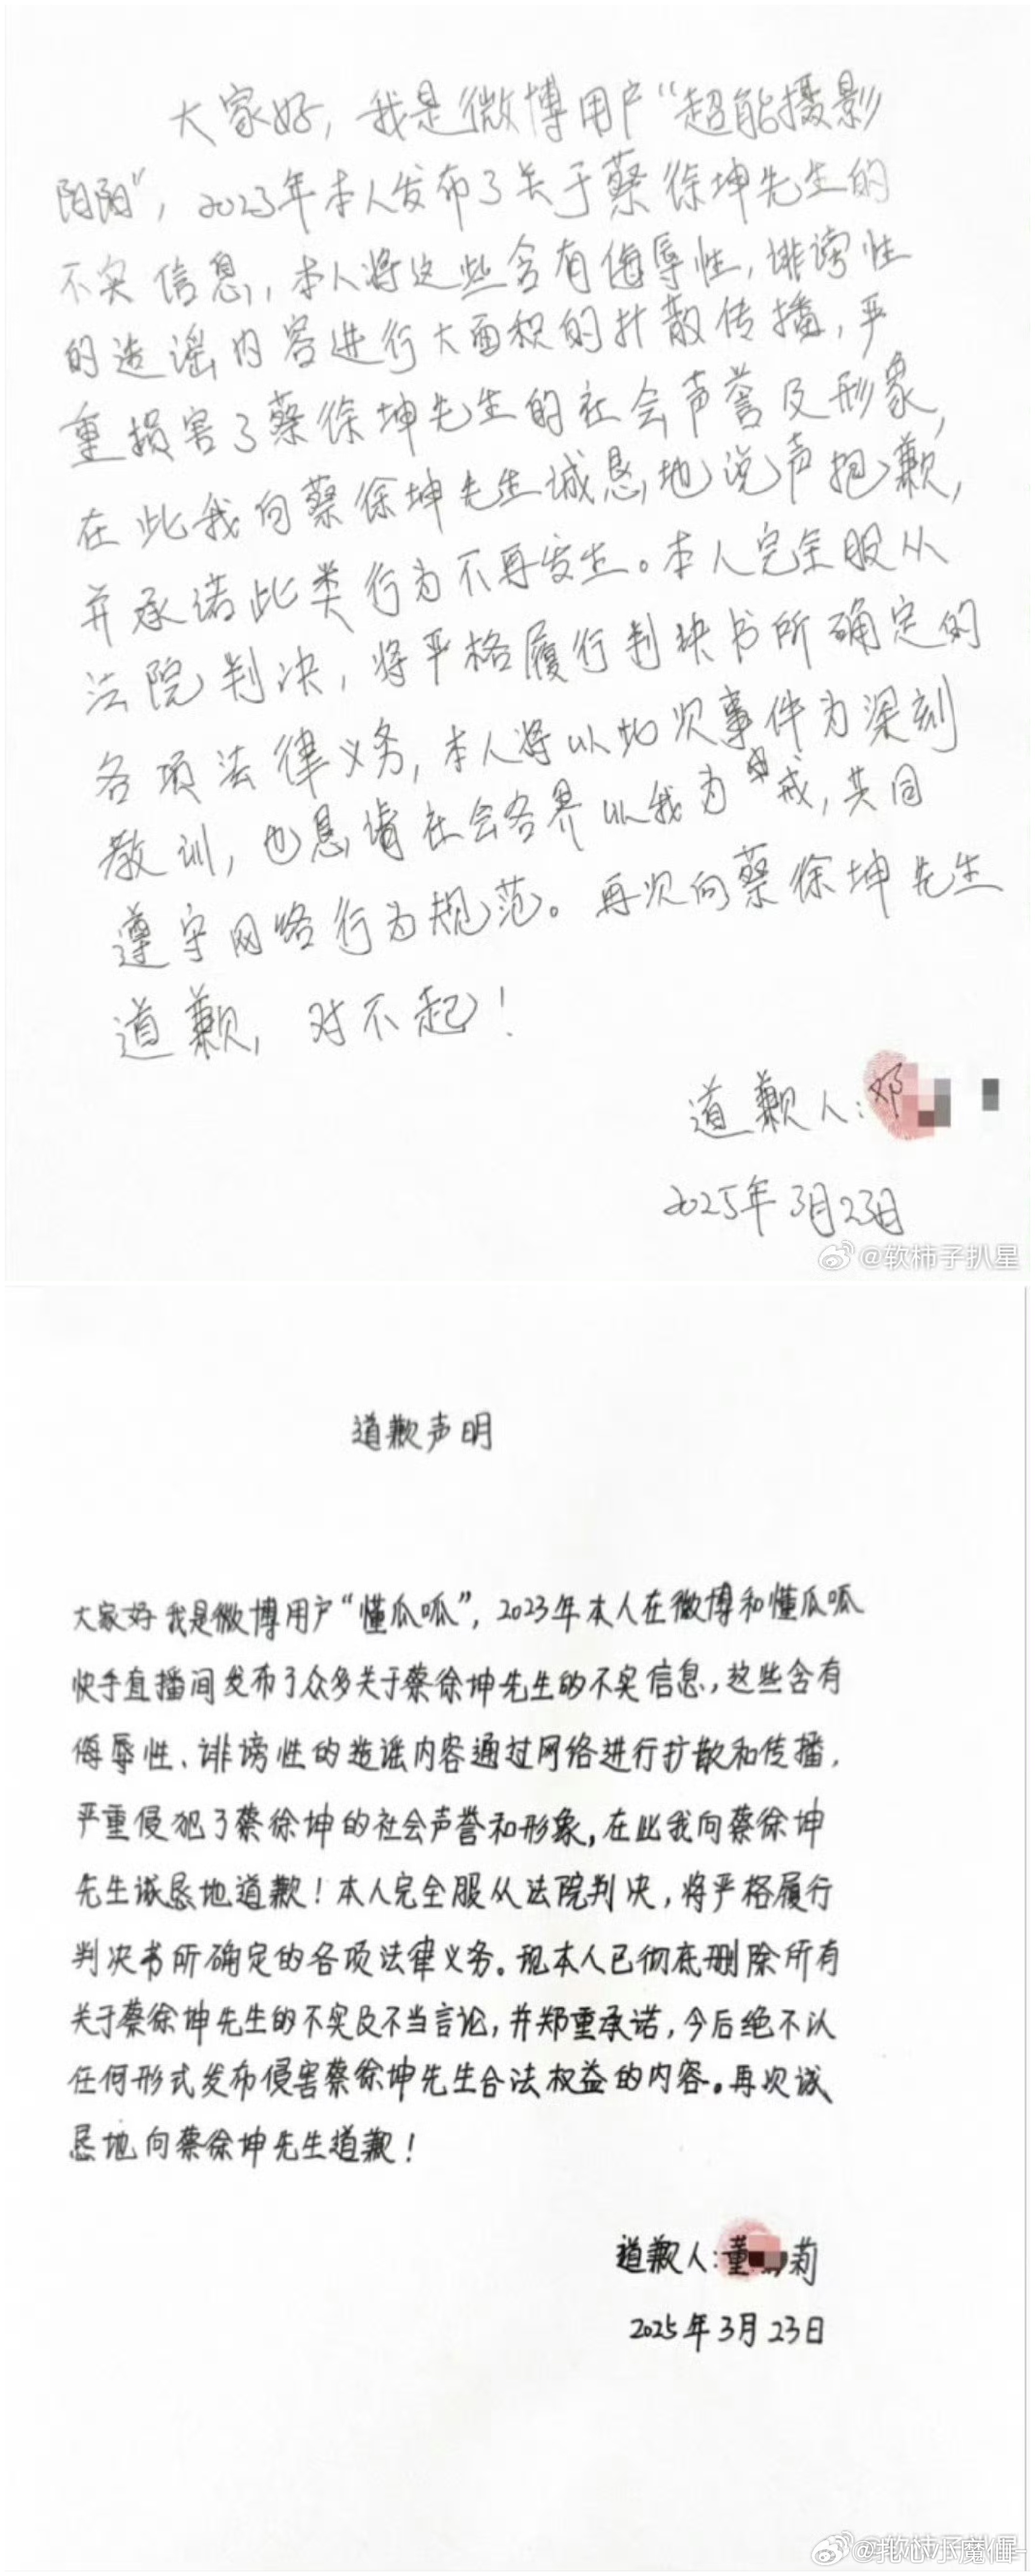 大家好，我是微博用户“超能摄影
阳阳”，2023年本人发布了关于蔡徐坤先生的
不实信息，本人将这些含有侮辱性，诽谤性
的造谣内容进行大面积的扩散传播，严
重损害了蔡徐坤先生的社会声誉及形象，
在此我向蔡徐坤先生诚恳地说声抱歉，
并承诺此类行为不再发生。本人完全服从
法院判决，将严格履行判决书所确定的
各项法律义务，本人将以此次事件为深刻
教训，也恳请社会各界以我为戒，共同
遵守网络行为规范。再次向蔡徐坤先生
道歉，对不起！
道歉人：邓
2025年3月23日
@软柿子扒星
道歉声明
大家好我是微博用户“懂瓜呱”，2023年本人在微博和懂瓜呱
快手直播间发布了众多关于蔡徐坤先生的不实信息，这些含有
侮辱性、诽谤性的造谣内容通过网络进行扩散和传播，
严重侵犯了蔡徐坤的社会声誉和形象，在此我向蔡徐坤
先生诚恳地道歉！本人完全服从法院判决，将严格履行
判决书所确定的各项法律义务。现本人已彻底删除所有
关于蔡徐坤先生的不实及不当言论，并郑重承诺，今后绝不以
任何形式发布侵害蔡徐坤先生合法权益的内容。再次诚
恳地向蔡徐坤先生道歉！
道歉人：董 莉
2025年3月23日